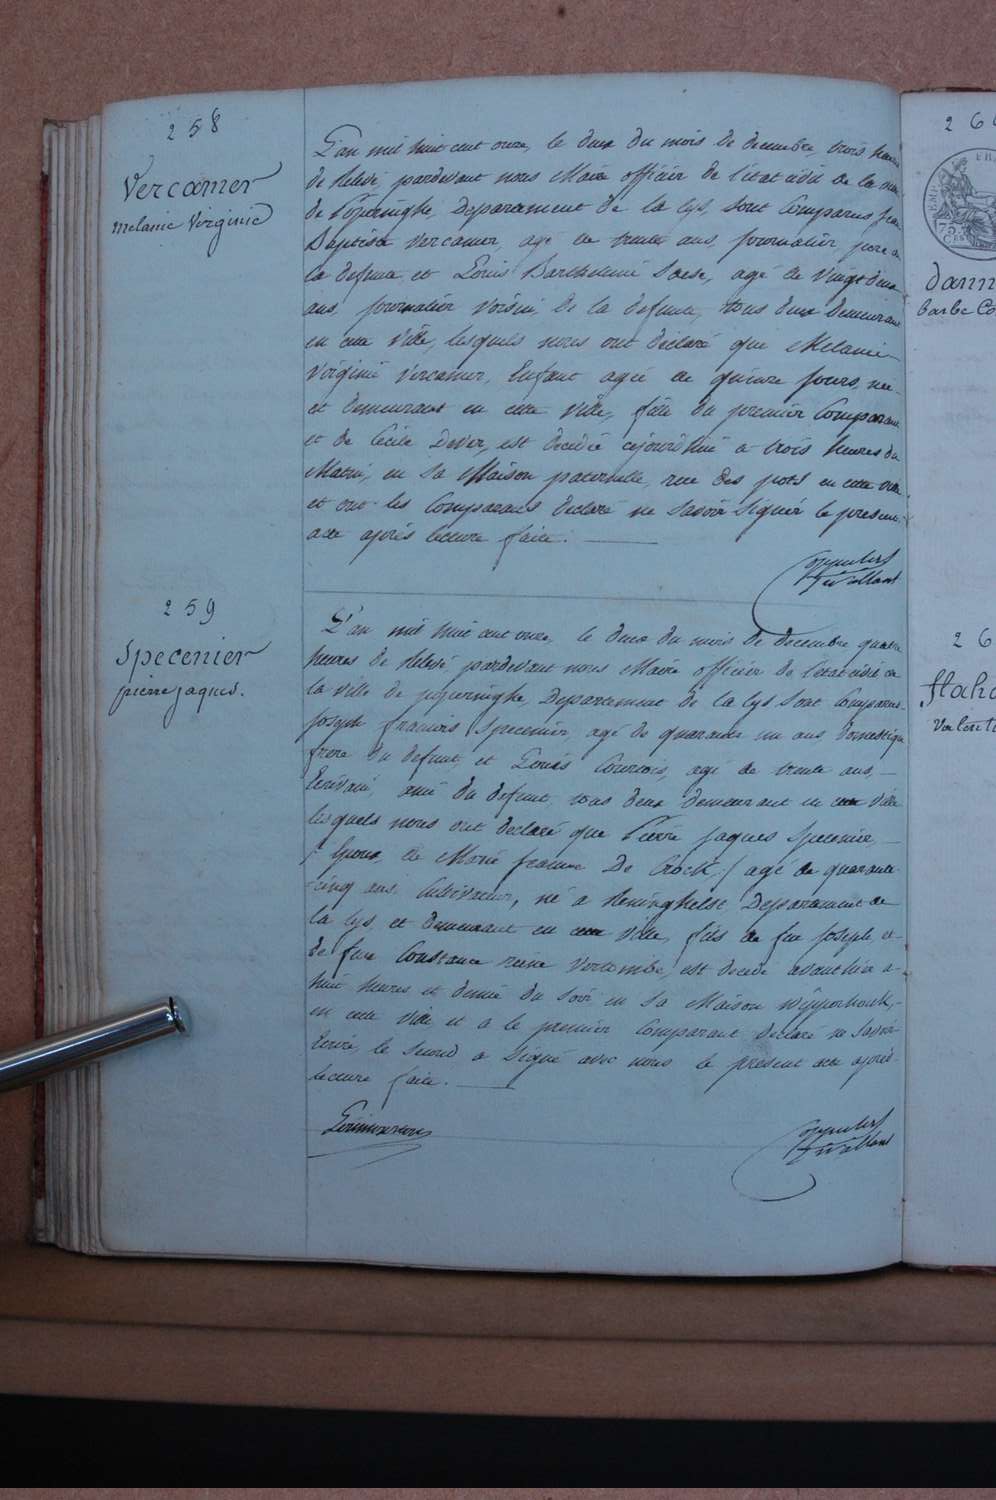 258
Vercamer
melanie Virginie
L'an mil huit cent onze, le deux du mois de decembre, trois heures
de Relevé, pardevant nous Maire officier de l'état civil de la ville
de Poperinghe, Departement de la Lys, sont Comparus jean
Baptiste Vercamer, agé de trente ans, journalier, pere de
la defunte, et Louis Barthelemi Soese, agé de vingt deux
ans, journalier voisin, de la defunte, tous deux demeurant
en cette ville, lesquels nous ont declaré que Melanie
Virginie Vercamer, Enfant agée de quinze jours, née
et demeurant en cette ville, fille du premier Comparant
et de Cecile Dever, est decedée cejourd'hui a trois heures du
Matin, en sa Maison paternelle, rue des pots en cette ville
et ont les Comparants declaré ne savoir signer le present
acte après lecture faite.
259
Specenier
pierre jaques.
L'an mil huit cent onze, le deux du mois de decembre quatre
heures de Relevé pardevant nous Maire officier de l'état civil de
la ville de poperinghe, Departement de la Lys sont Comparus
Joseph francois Specenier, agé de quarante un ans, domestique
frere du defunt, et Louis Courtois, agé de trente ans,
Ecrivain, ami du defunt, tous deux demeurant en cette ville
lesquels nous ont declaré que Pierre jaques Specenier,
( Epoux de Marie francoise De Crock,) agé de quarante
cinq ans, Cultivateur, né a Reninghelst, Departement de
la Lys, et demeurant en cette ville, fils de feu Joseph, et
de feue Constance reine Vertombe, est decedé avant hier a
huit heures et demie du soir en sa Maison Wipperhoek,
en cette ville et a le premier Comparant declaré ne savoir
Ecrire, le second a signé avec nous le present acte après
lecture faite.
260
EMP FRA
75
CES
dann
barbe Co
26
flaho
Valent